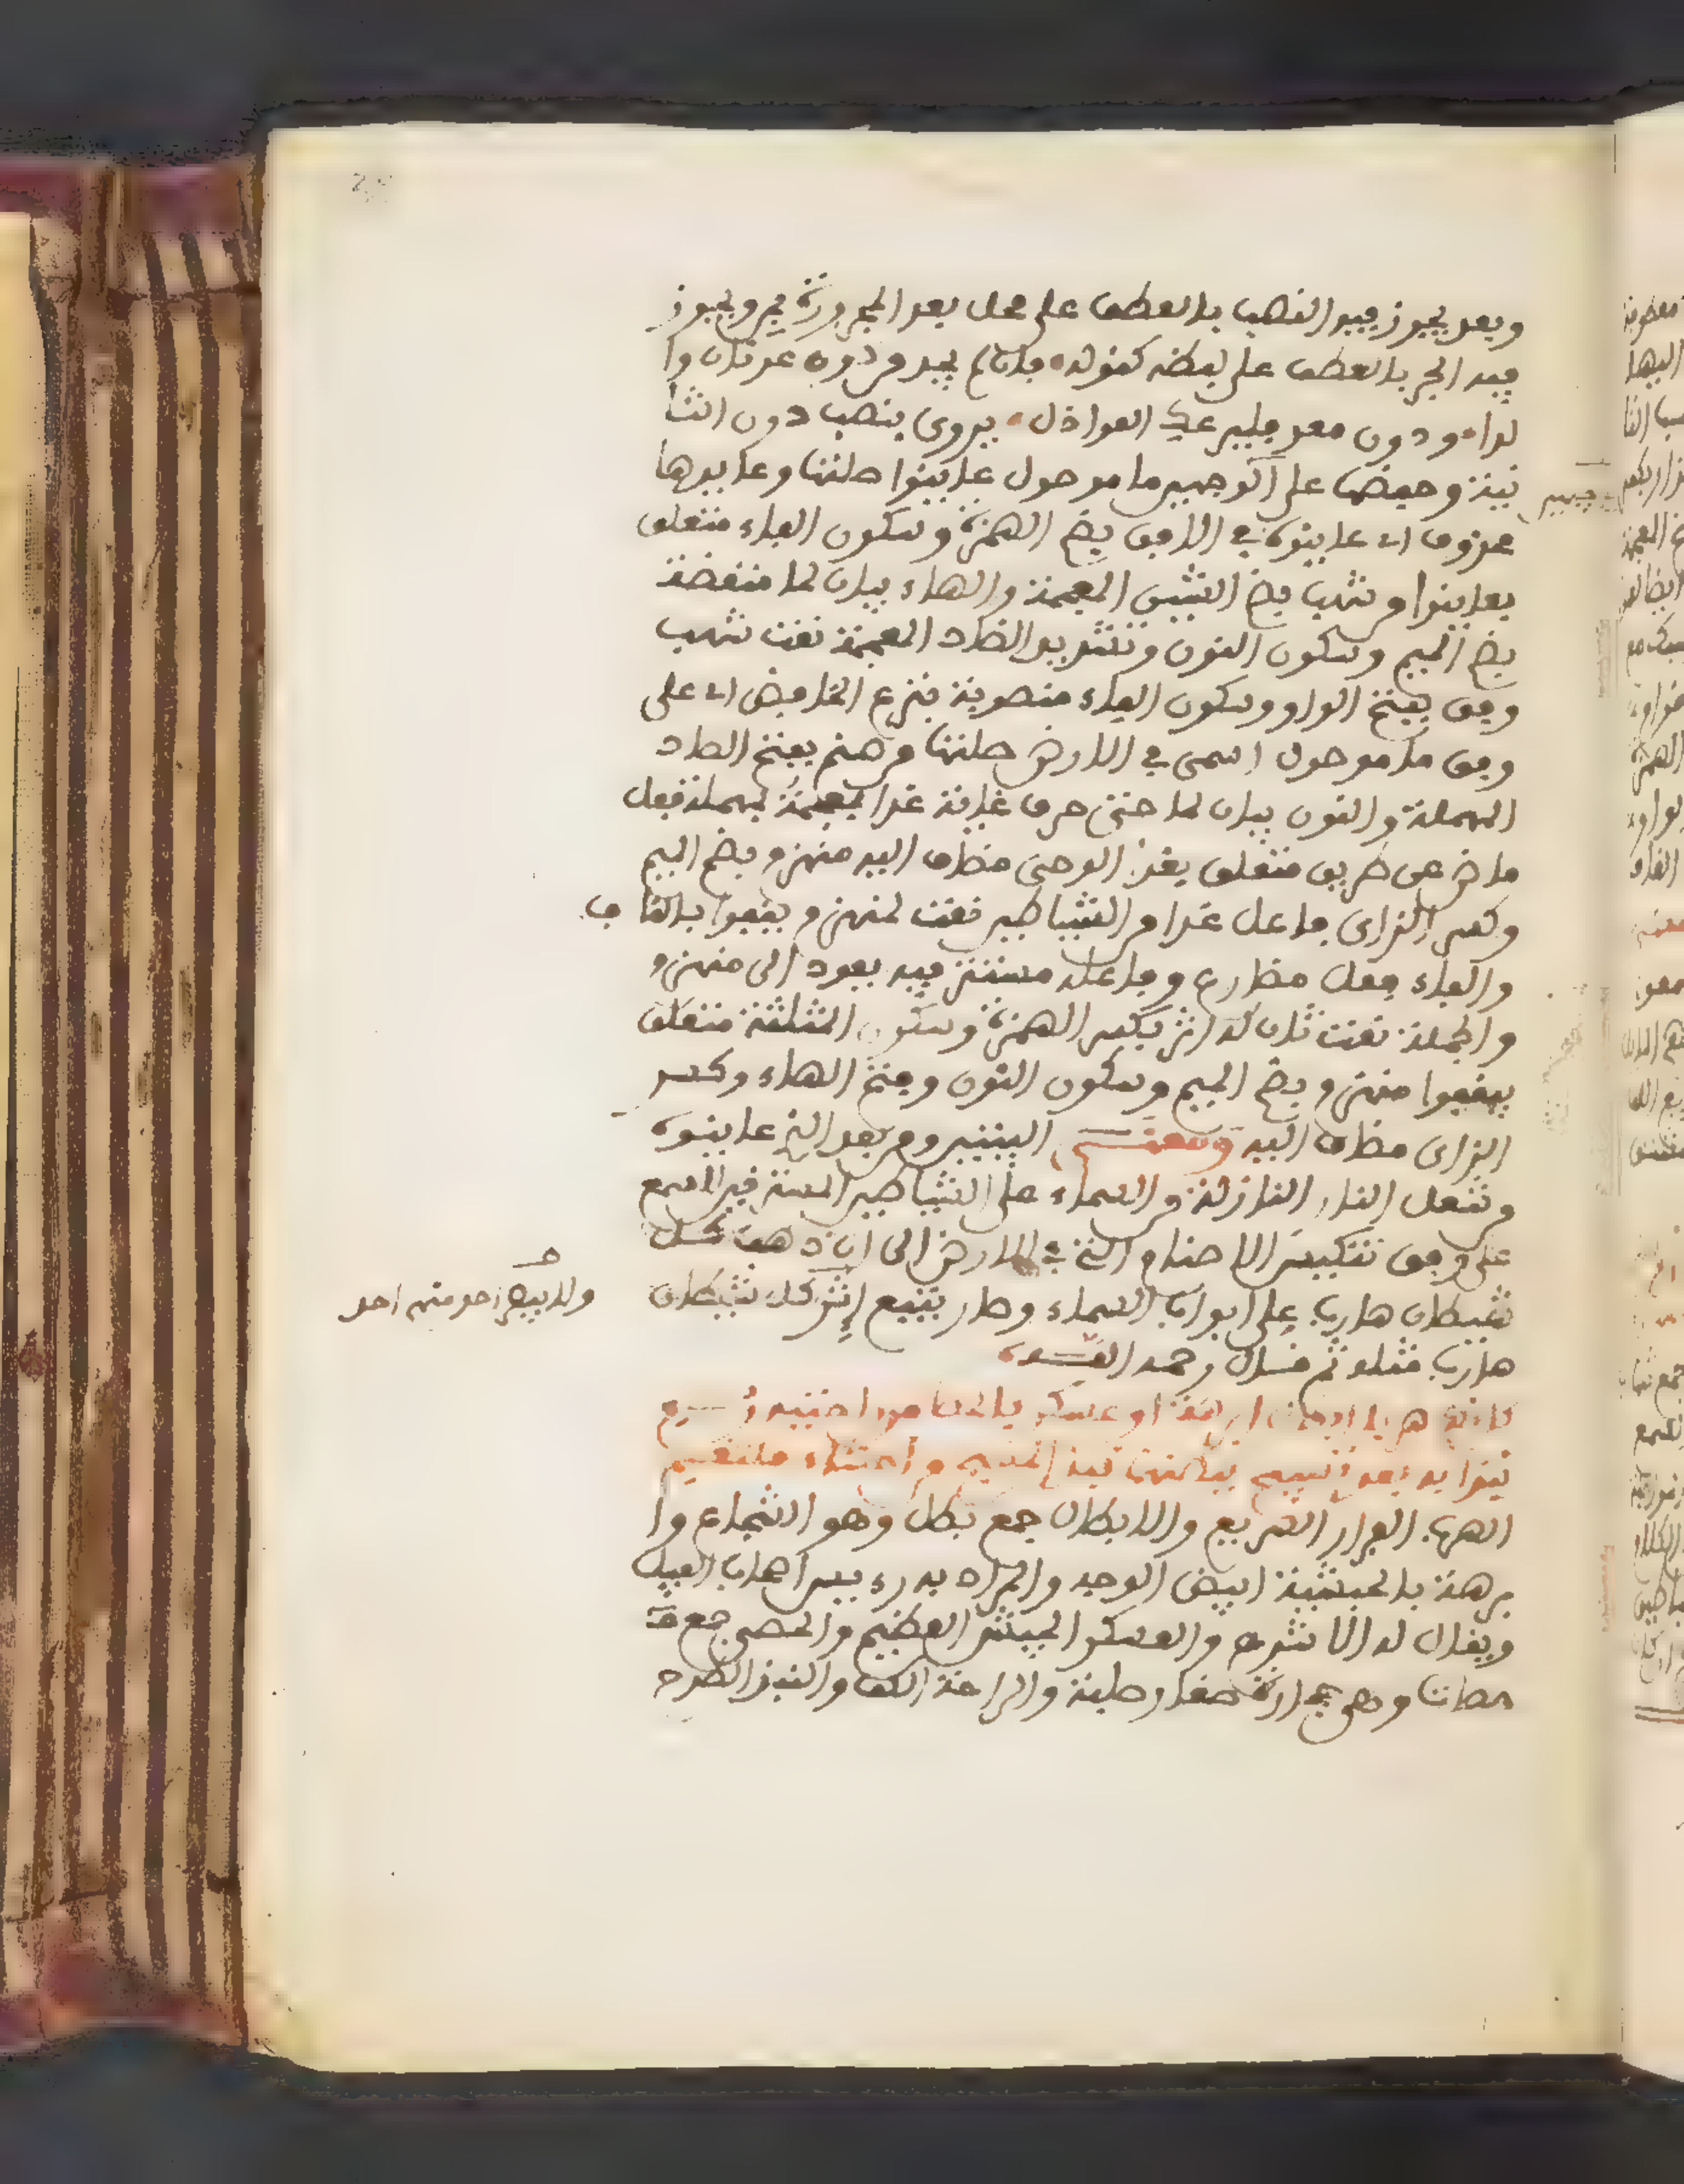 وبعد يجوز فيه النصب بالعطف على محل بعد المجرورة بمن ويجوز
فيه الجر بالعطف على لفظه كقوله فإن لم تجد من دون عدنان وا
لدا ودون معد فليرعك العواذل يروى بنصب دون الثا
نية وخفضها على الوجهين ما موصول عاينوا صلتها وعايدها
محذوف اى عاينوه فى الافق بضم الهمزة وسكون الفاء متعلق
بعاينوا من شهب بضم الشين المعجمة والهاء بيان لما منقضة
بضم الميم وسكون النون وتشديد الضاد المعجمة نعت شهب
وفق بفتح الواو وسكون الفاء منصوبة بنزع الخافض اى على
وفق ما موصول اسمى فى الارض صلتها من صنم بفتح الصاد
المهملة والنون بيان لما حتى حرف غاية غدا بمعجمة فمهملة فعل
ماض عن طريق متعلق بغدا الوحى مضاف اليه منهزم بضم الميم
وكسر الزاى فاعل غدا من الشياطين نعت لمنهزم يقفوا بالقاف
والفاء فعل مضارع وفاعله مستتر فيه يعود الى منهزم
والجملة نعت ثان له اثر بكسر الهمزة وسكون المثلثة متعلق
بيقفوا منهزم بضم الميم وسكون النون وفتح الهاء وكسر
الزاى مضاف اليه ومعنى البيتين ومن بعد الذى عاينوه
من شعل النار النازلة من السماء على الشياطين المسترقين السمع
على وفق تنكيس الاصنام التى فى الارض الى ان ذهب كل
شيطان هاربا على ابواب السماء وصار يتبع اثر كل شيطان
هاربا مثله ثم قال رحمه الله
كانهم هربا ابطال ابرهة او عسكر بالحصا من راحتيه رمى
نبذا به بعد تسبيح ببطنهما نبذ المسبح من احشاء ملتقم
الهرب الفرار السريع والابطال جمع بطل وهو الشجاع وا
برهة بالحبشية ابيض الوجه والمراد به رءيس اصحاب الفيل
ويقال له الاشرم والعسكر الجيش العظيم والحصى جمع
حصاة وهى حجارة صغار صلبة والراحة الكف والنبذ الطرح
ولا يبقى احد منهم احد